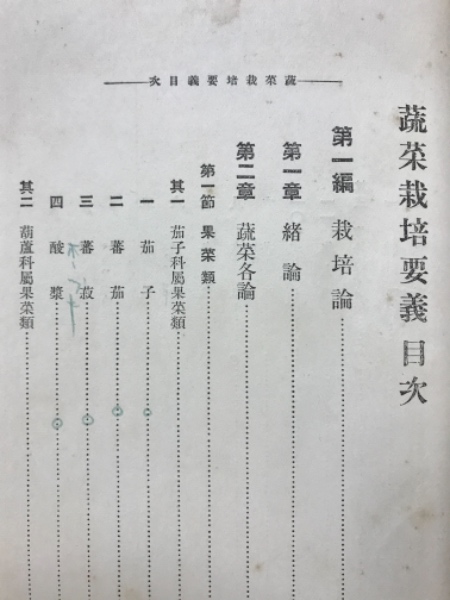 蔬菜栽培要義目次
蔬菜栽培要義目次
第一編 栽培論
第一章 緒論
第二章 蔬菜各論
第一節 果菜類
其一 茄子科屬果菜類
一 茄子
二 蕃茄
三 蕃菽
四 酸漿
其二 葫蘆科屬果菜類